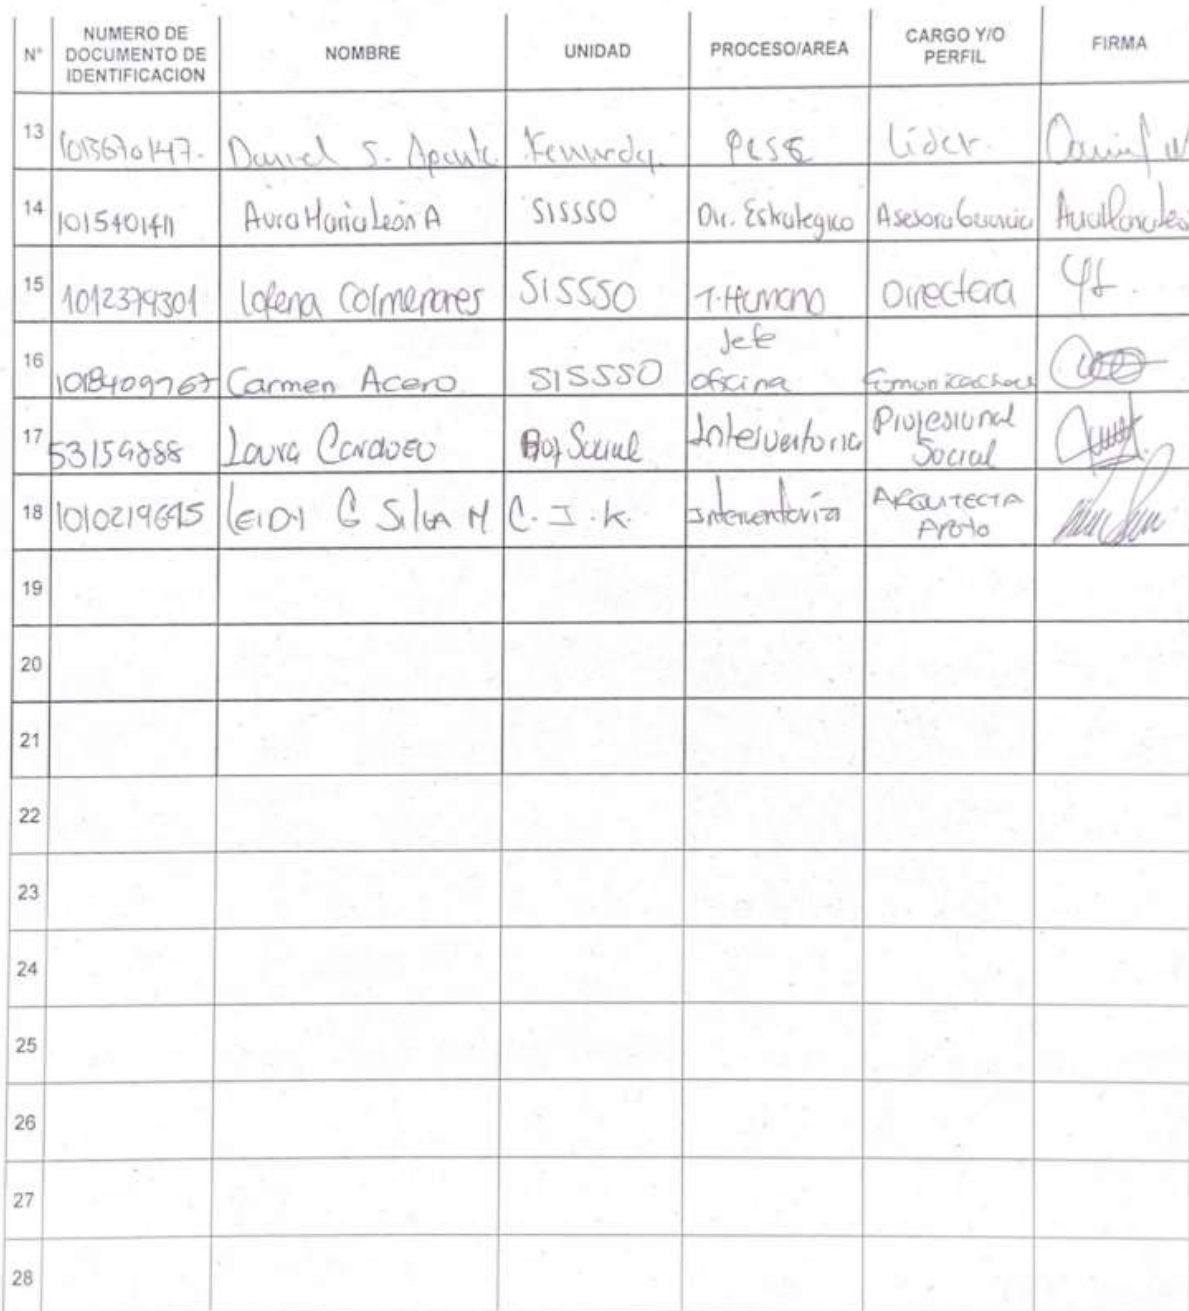 N° NUMERO DE DOCUMENTO DE IDENTIFICACION NOMBRE UNIDAD PROCESO/AREA CARGO Y/O PERFIL FIRMA
13 1013670147. Daniel S. Aponte Kennedy. Líder.
14 1015401411 Aura Maria León A SISSSO Dir. Estrategico Asesora Gerencia
15 1012379301 Lorena Colmenares SISSSO T. Humano Directora
16 1018409767 Carmen Acero SISSSO Jefe oficina Comunicaciones
17 53159888 Laura Cardozo Social Interventoria Profesional Social
18 1010219695 LEIDI G SILVA M C. I. K. Interventoría ARQUITECTA APOYO
19
20
21
22
23
24
25
26
27
28